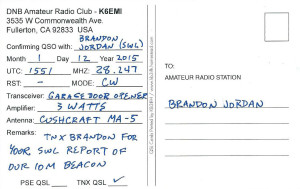 DNB Amateur Radio Club - K6EMI
3535 W Commonwealth Ave.
Fullerton, CA 92833 USA
BRANDON
Confirming QSO with: JORDAN (SWL)
Month 1 Day 12 Year 2015
UTC: 1551 MHZ: 28.247
RST: MODE: CW
Transceiver: GARAGE DOOR OPENER
Amplifier: 3 WATTS
Antenna: CUSHCRAFT MA-5
Remarks: TNX BRANDON FOR
YOUR SWL REPORT OF
OUR 10M BEACON
PSE QSL TNX QSL ✓
TO:
AMATEUR RADIO STATION
BRANDON JORDAN